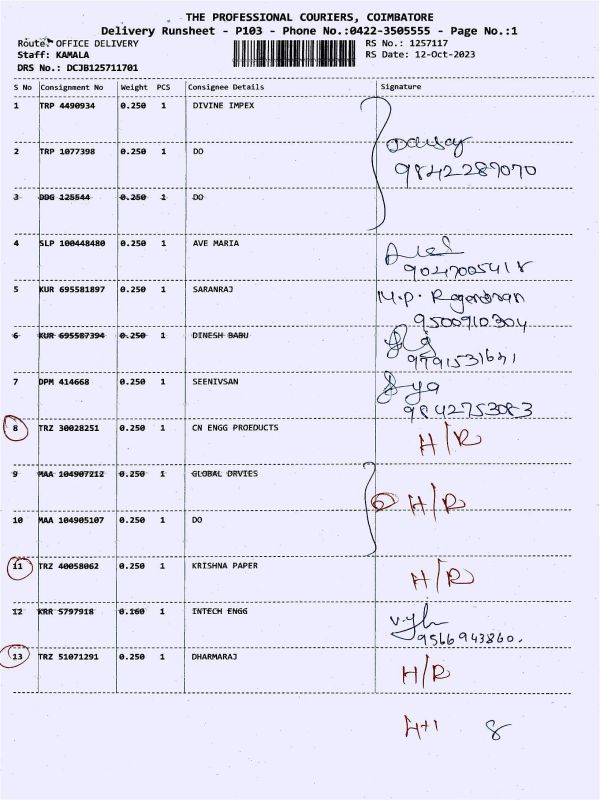 THE PROFESSIONAL COURIERS, COIMBATORE
Delivery Runsheet - P103 - Phone No.:0422-3505555 - Page No.:1
Route: OFFICE DELIVERY RS No.: 1257117
Staff: KAMALA RS Date: 12-Oct-2023
DRS No.: DCJB125711701
S No Consignment No Weight PCS Consignee Details Signature
1 TRP 4490934 0.250 1 DIVINE IMPEX
2 TRP 1077398 0.250 1 DO
9842287070
3 DDG 125544 0.250 1 DO
4 SLP 100448480 0.250 1 AVE MARIA
9047005418
5 KUR 695581897 0.250 1 SARANRAJ M.P.
9500910304
6 KUR 695587394 0.250 1 DINESH BABU
9791531641
7 DPM 414668 0.250 1 SEENIVSAN
9842753083
8 TRZ 30028251 0.250 1 CN ENGG PROEDUCTS H/R
9 MAA 104907212 0.250 1 GLOBAL DRVIES
H/R
10 MAA 104905107 0.250 1 DO
11 TRZ 40058062 0.250 1 KRISHNA PAPER H/R
12 KRR 5797918 0.160 1 INTECH ENGG
9566943860.
13 TRZ 51071291 0.250 1 DHARMARAJ H/R
8